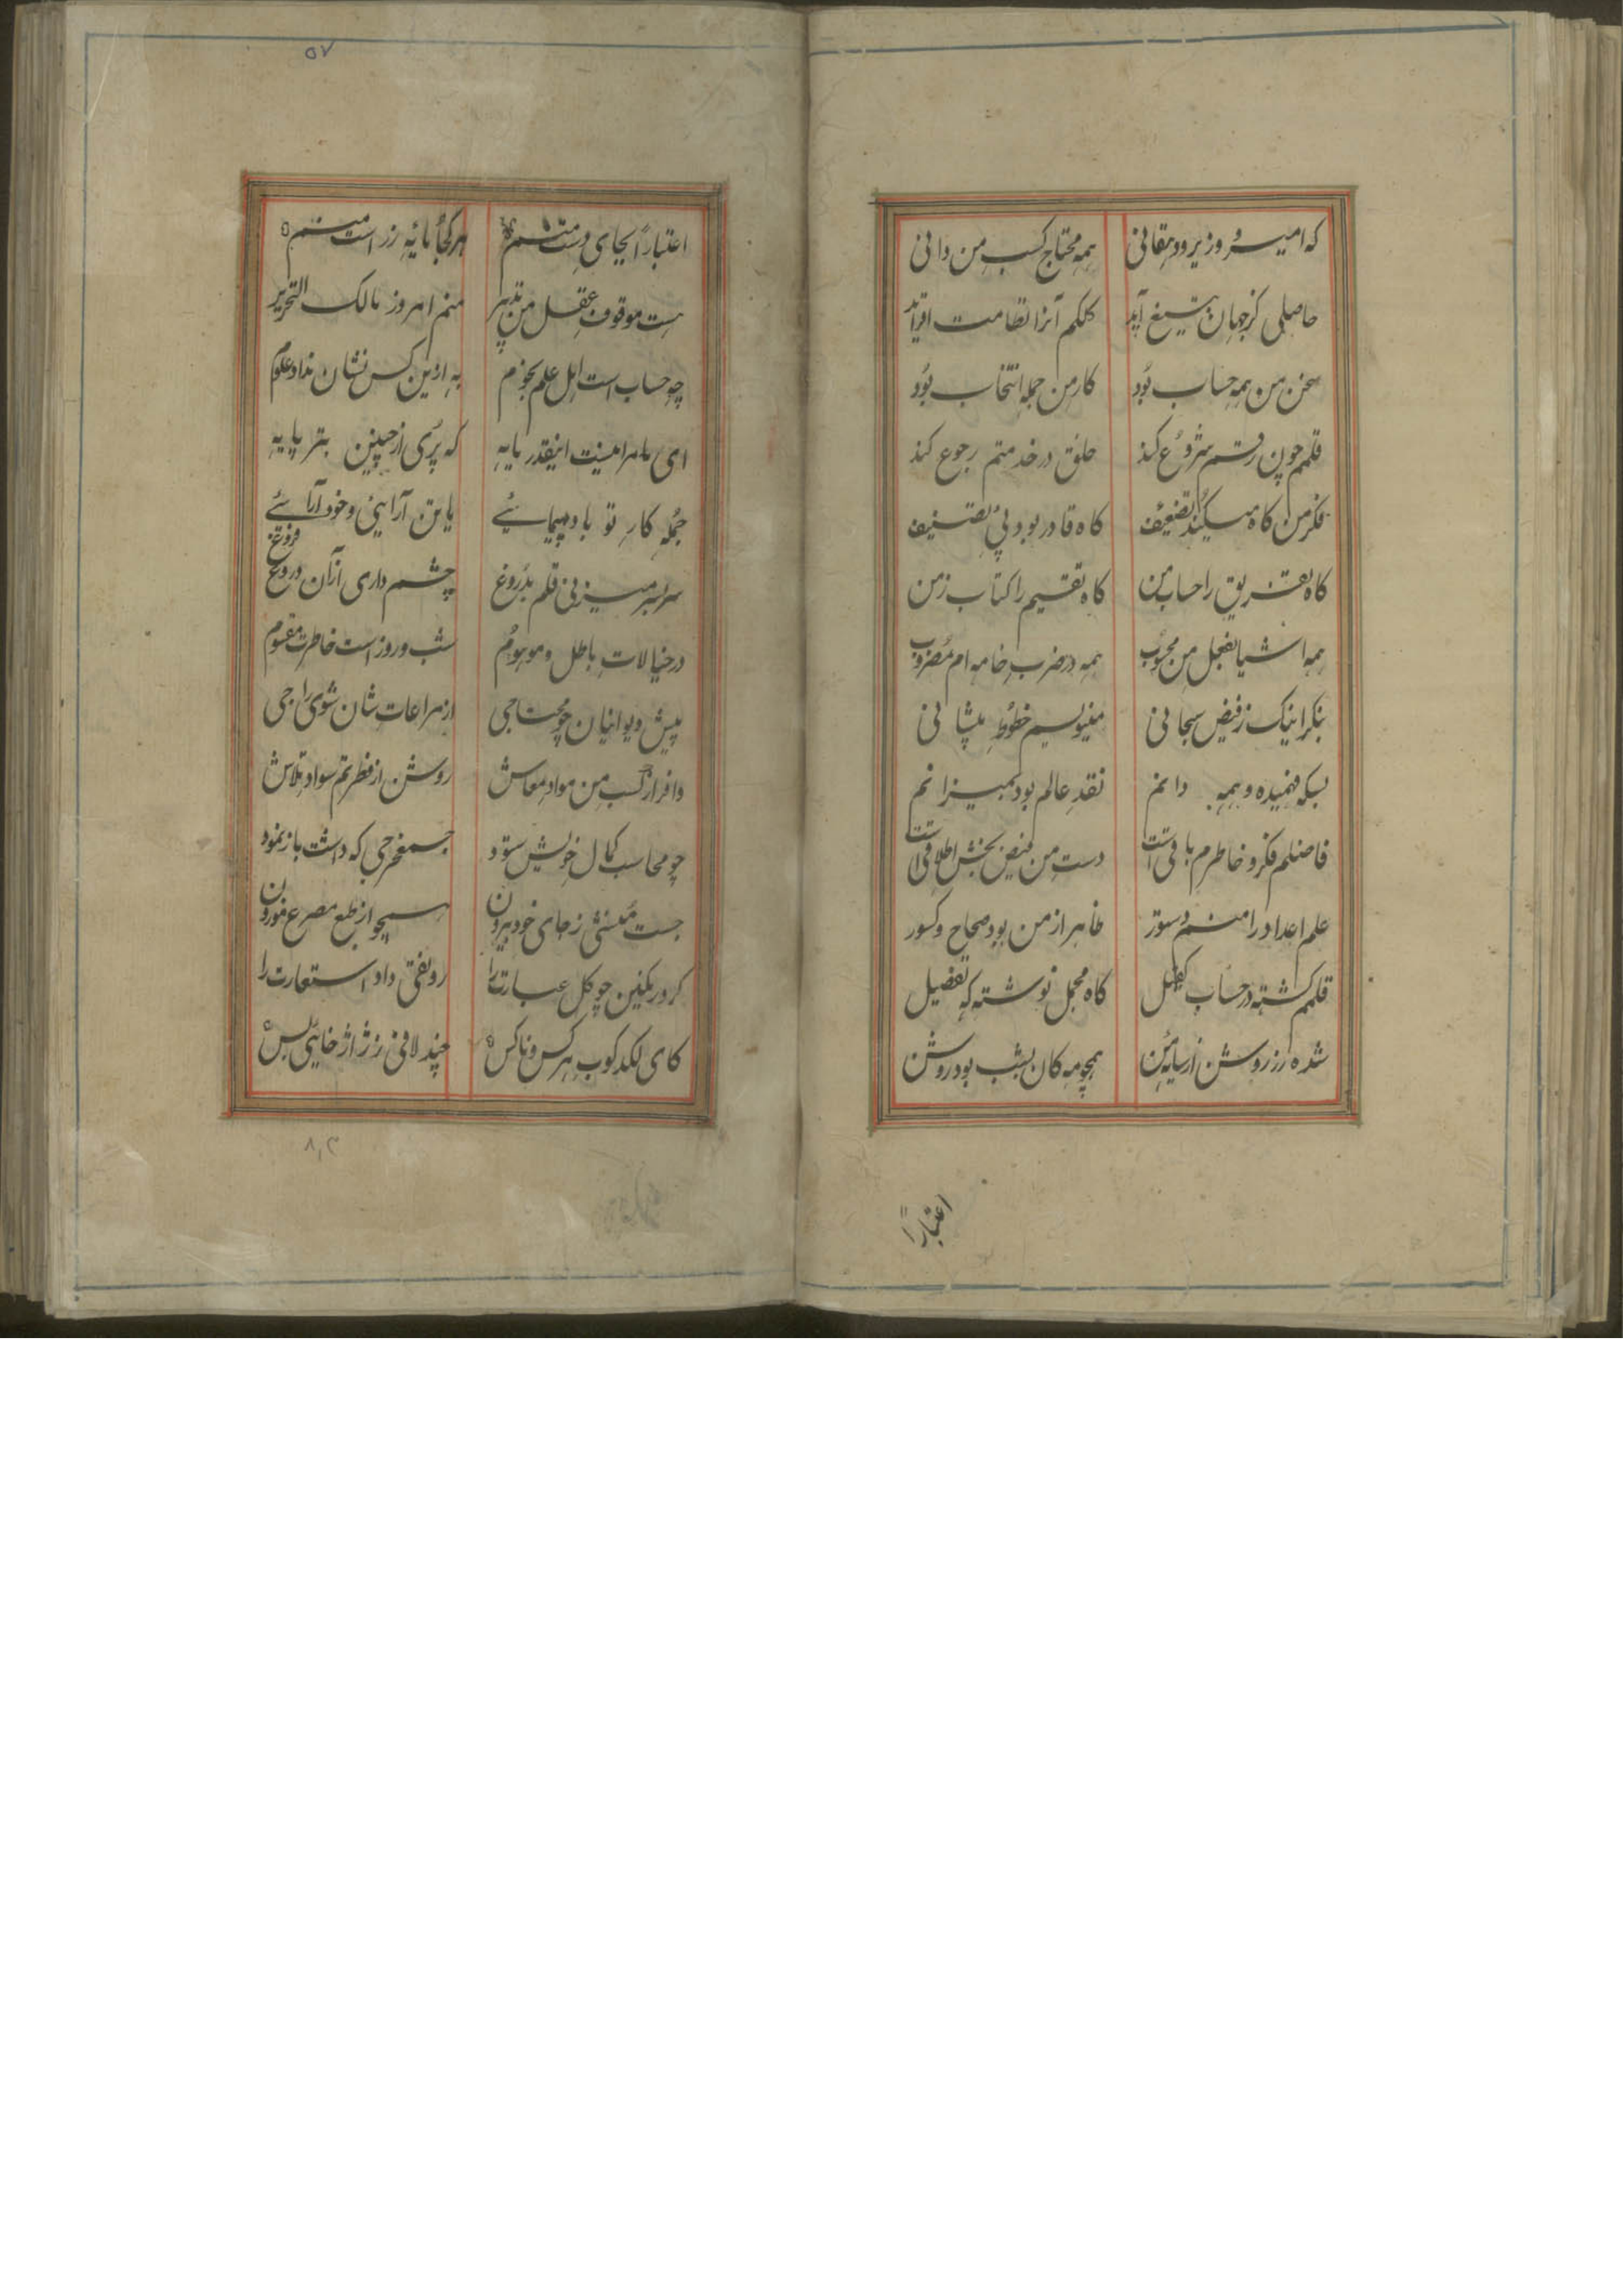 که امیر و وزیر و دهقانی همه محتاج کسب من دانی
حاصلی کز جهان بتیغ آید کلکم آنرا نظامت افزاید
سخن من همه حساب بود کار من جمله انتخاب بود
قلمم چون رقم شروع کند خلق در خدمتم رجوع کند
فکر من کاه میکند تضعیف کاه قادر بود پی تصنیف
کاه تفریق را حساب من کاه تقسیم را کتاب زمن
همه اشیا بفعل من محسوب همه در ضرب خامه ام مضروب
بنکر اینک ز فیض سبحانی منیویسم خطوط پیشانی
بسکه فهمیده و همه دانم نقد عالم بود بمیزانم
فاضلم فکر و خاطرم باقی است دست من فیض بخش اطلاقی است
علم اعداد را منم دستور ظاهر از من بود صحاح و کسور
قلمم کشته در حساب کفیل کاه مجمل نوشته که تفصیل
شده رز روشن از سیاهی من همچو مه کان بشب بود روشن
اعتباراً
۵۷
اعتبار ایجای دست منم هر کجا پایه زر است منم
هست موقوف عقل من تدبیر منم امروز مالک التحریر
چه حساب است اهل علم نجوم به ازین کس نشان نداد علوم
ای مامرا منیت اینقدر مایه که پری از چنین بتر پایه
جمله کار تو باد پیمائی یا تن آرائی و خود آرائے
سر بسر میزنی قلم بدروغ چشم داری از آن دروغ فروغ
در خیالات باطل و موهوم شب و روز است خاطرت مقسوم
پیش دیوانیان چو محتاجی از مراعات شان شوی راجی
وافر از کسب من مواد معاش روشن از فطرتم سواد تلاش
چو محاسب کمال خویش ستود جمع خرجی که داشت باز نمود
جست منشی ز جای خود بیرون همچو از طبع مصرع موزون
کرد رنکین چو کل عبارت را رونقی داد استعارت را
کای لکد کوب هر کس و ناکس چند لافی ز ژاژ خائی بس